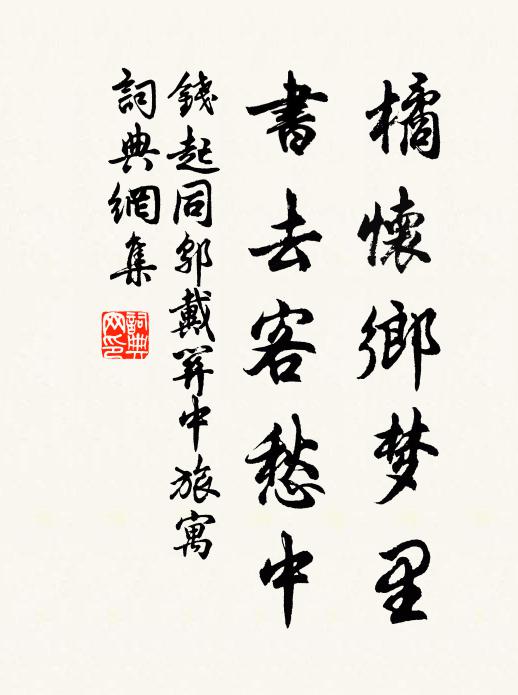 橘懷鄉梦里
書去客愁中
錢起同鄔戴關中旅寓
詞典網集
詞典网印